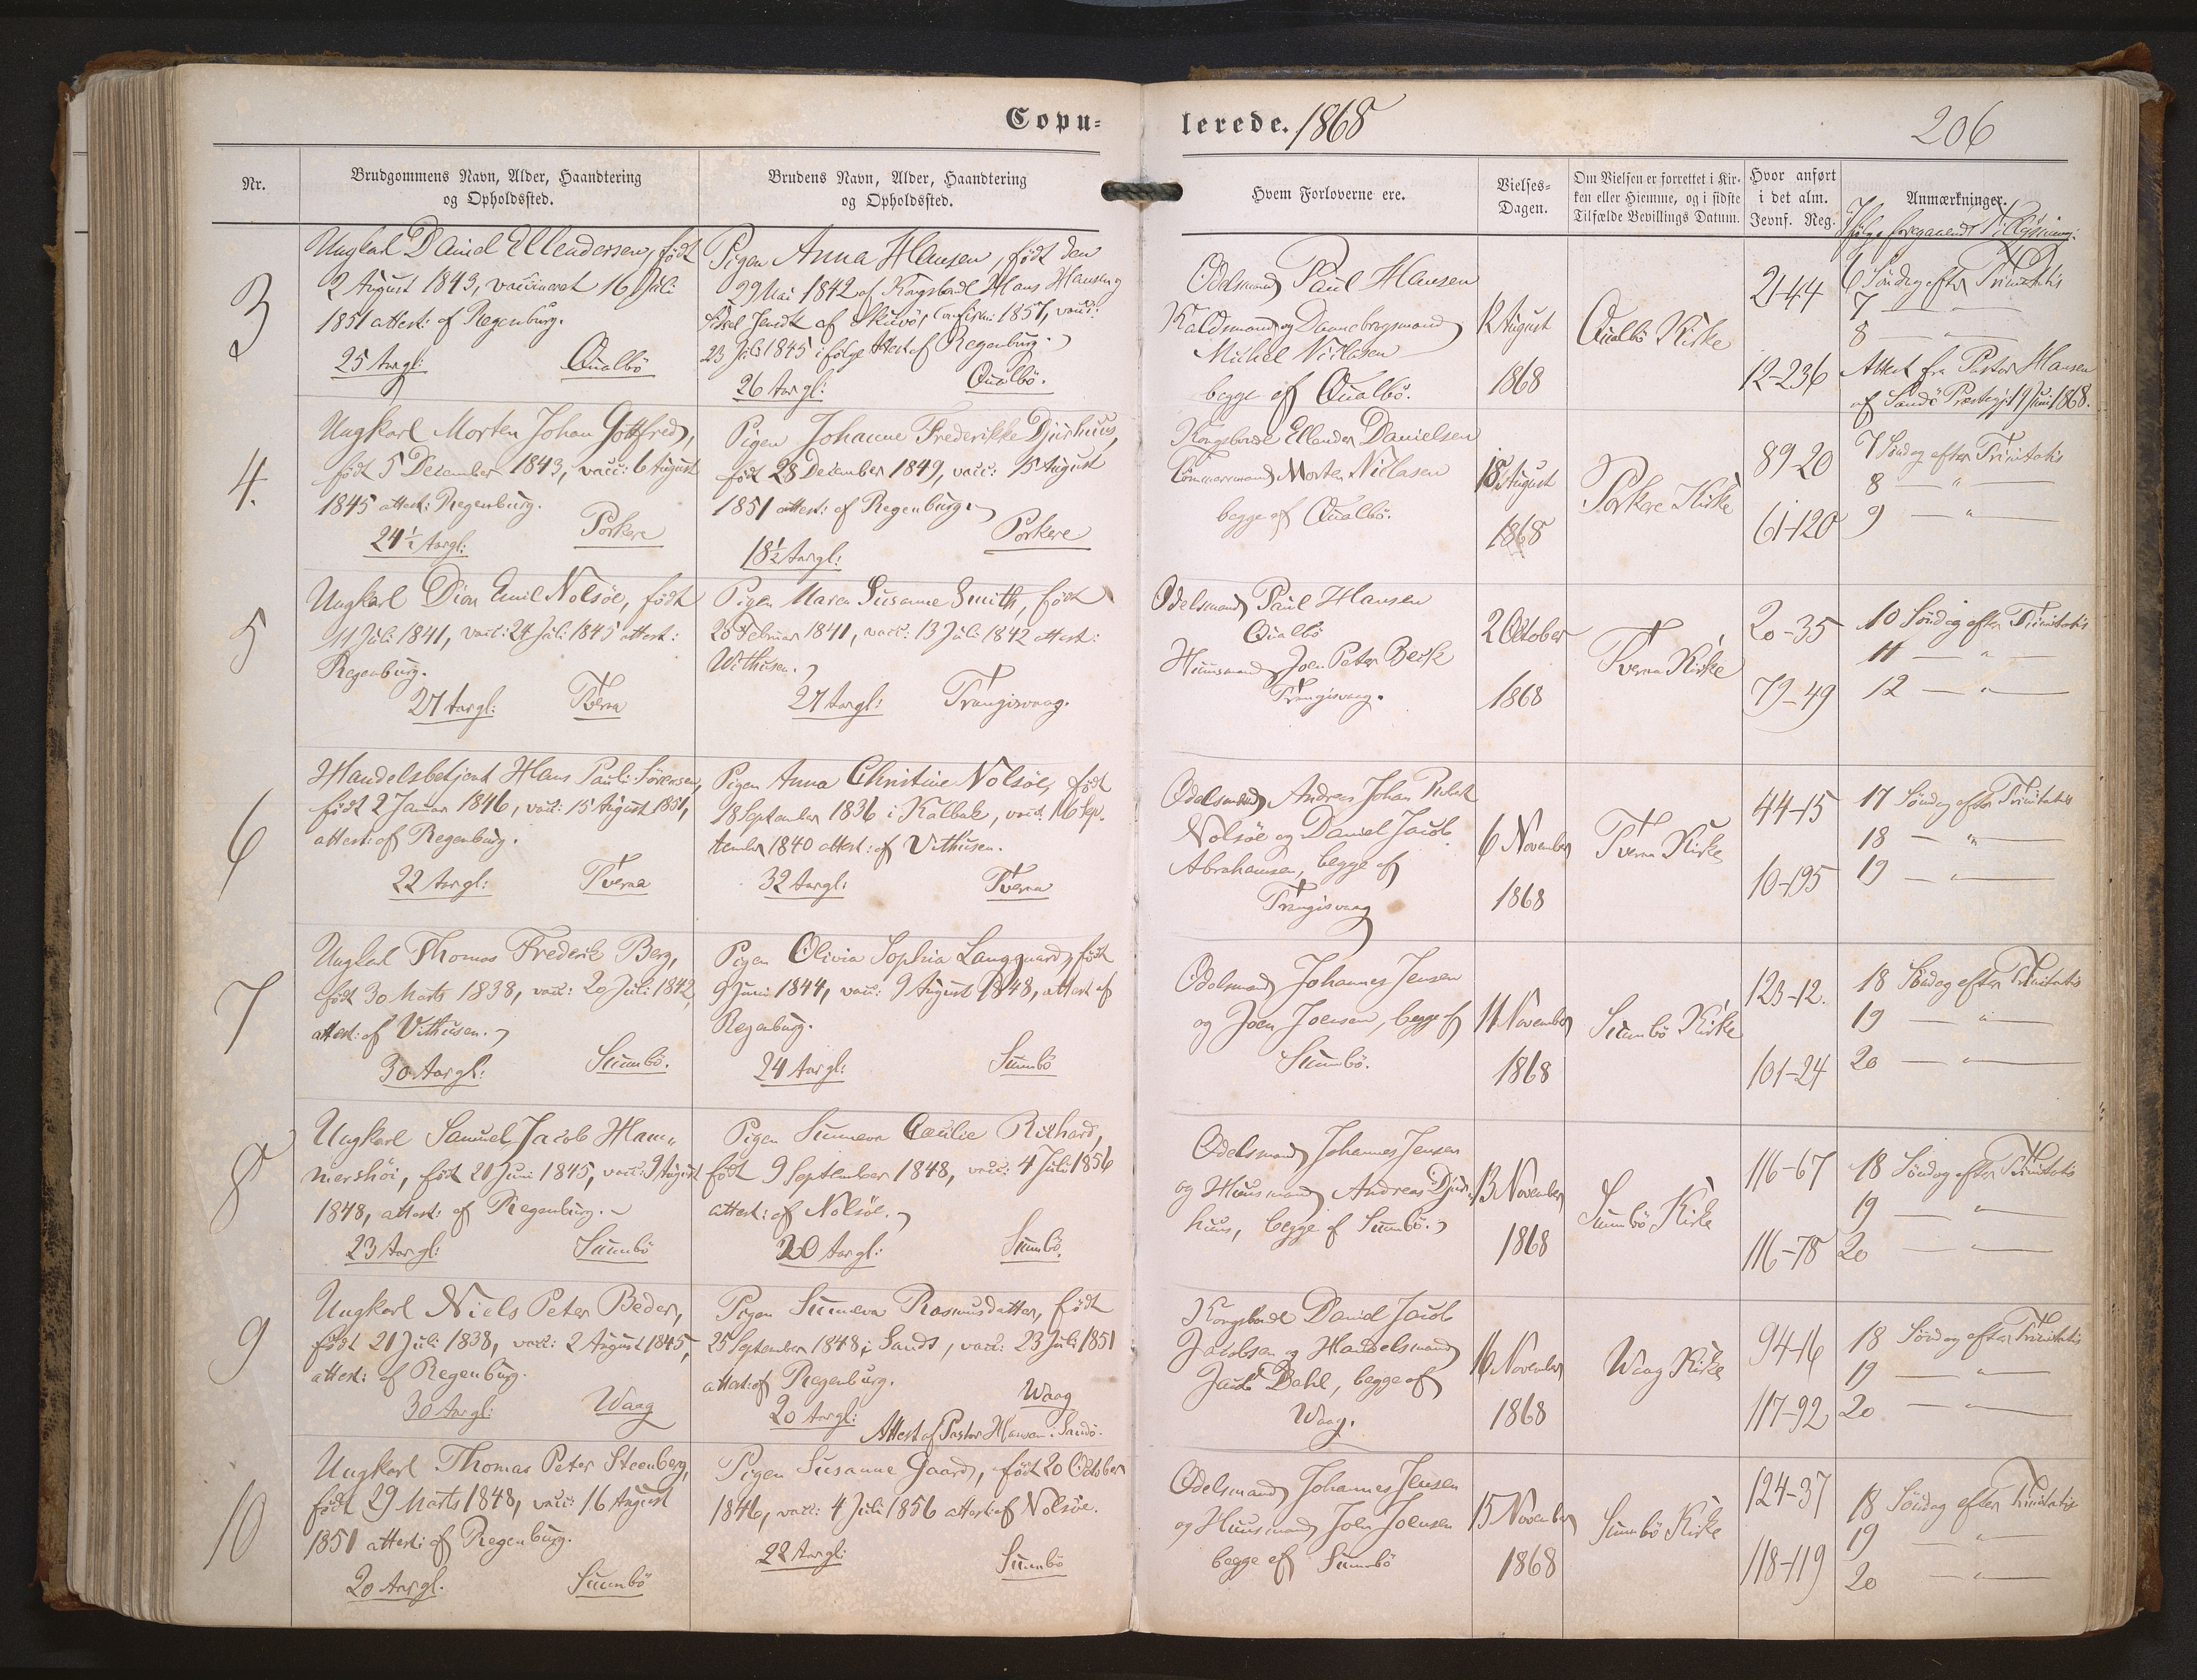 Copu-
lerede. 1868
206
Nr.
Brudgommens Navn, Alder, Haandtering
og Opholdssted.
Brudens Navn, Alder, Haandtering
og Opholdssted.
Hvem Forloverne ere.
Vielses-
Dagen.
Om Vielsen er forrettet i Kir-
ken eller Hiemme, og i sidste
Tilfælde Bevillings Datum.
Hvor anført
i det alm.
Jevnf. Reg.
Anmærkninger.
Ifølge foregaaende Tillysning:
3
Ungkarl Daniel Ellendersen, født
2 August 1843, vaccineret 16 Juli
1851 attest: af Regenburg.
25 Aargl: Qualbö
Pigen Anna Hansen, født den
29 Mai 1842 af Kongsbonde Hans Hansen og
af Skuvö, Confirm: 1857, vacc:
23 Juli 1845 ifølge Attest af Regenburg.
26 Aargl: Qualbö.
Odelsmand Paul Hansen
og Dannebrogsmand
Michel Niclasen
begge af Qualbö.
12 August
1868
Qualbö Kirke
21-44
12-236
6 Söndag efter Trinitatis
7 — " —
8 — " —
Attest fra Pastor Hansen
af Sandö Præstegj: 19 Juni 1868.
4.
Ungkarl Morten Johan Gottfred,
født 5 December 1843, vacc: 6 August
1845 attest: Regenburg.
24½ Aargl: Porkere
Pigen Johanne Frederikke Djurhuus,
født 28 December 1849, vacc: 15 August
1851 attest: af Regenburg.
18½ Aargl: Porkere
Kongsbonde Ellender Danielsen
Tömmermand Morten Niclasen
begge af Qualbö.
18 August
1868
Porkere Kirke
89-20
61-120
7 Söndag efter Trinitatis
8 — " —
9 — " —
5
Ungkarl Dion Emil Nolsöe, født
11 Juli 1841, vacc: 24 Juli 1845 attest:
Regenburg.
27 Aargl: Tveraa
Pigen Maren Susanne Smith, født
20 Februar 1841, vacc: 13 Juli 1842 attest:
Withusen.
27 Aargl: Trangisvaag.
Odelsmand Paul Hansen
Qualbö
Huusmand Joen Peter Beck
Trangisvaag.
2 October
1868
Tveraa Kirke
20-35
79-49
10 Söndag efter Trinitatis
11 — " —
12 — " —
6
Handelsbetjent Hans Pauli Sörensen,
født 2 Januar 1846, vacc: 15 August 1851,
attest: af Regenburg.
22 Aargl: Tveraa
Pigen Anna Christine Nolsöe, født
18 September 1836 i Kalbak, vacc: 16 Sep-
tember 1840 attest: af Vithusen.
32 Aargl: Tveraa
Odelsmand Andreas Johan
Nolsöe og Daniel Jacob
Abrahamsen, begge af
Trangisvaag
6 November
1868
Tveraa Kirke
44-15
10-195
17 Söndag efter Trinitatis
18 — " —
19 — " —
7
Ungkarl Thomas Frederik Berg,
født 30 Marts 1838, vacc: 20 Juli 1842,
attest: af Vithusen.
30 Aargl: Sumbö.
Pigen Olivia Sophia Langgaard, født
9 Juni 1844, vacc: 9 August 1848, attest af
Regenburg.
24 Aargl: Sumbö
Odelsmand Johannes Jensen
og Joen Joensen, begge af
Sumbö.
11 November
1868
Sumbö Kirke
123-12.
101-24
18 Söndag efter Trinitatis
19 — " —
20 — " —
8
Ungkarl Samuel Jacob Ham-
mershöi, født 21 Juni 1845, vacc: 9 August
1848, attest: af Regenburg.
23 Aargl: Sumbö
Pigen Sunneva Cæcilie Richard,
født 9 September 1848, vacc: 4 Juli 1856
attest: af Nolsöe.
20 Aargl: Sumbö.
Odelsmand Johannes Jensen
og Huusmand Andreas Djur-
huus, begge af Sumbö.
13 November
1868
Sumbö Kirke
116-67
116-78
18 Söndag efter Trinitatis
19 — " —
20 — " —
9
Ungkarl Niels Peter Beder,
født 21 Juli 1838, vacc: 2 August 1845,
attest: af Regenburg.
30 Aargl: Waag
Pigen Sunneva Rasmusdatter, født
25 September 1848 i Sand, vacc: 23 Juli 1851
attest: af Regenburg.
20 Aargl: Waag
Attest af Pastor Hansen. Sandö.
Kongsbonde Daniel Jacob
Jacobsen og Handelsmand
Jacob Dahl, begge af
Waag.
16 November
1868
Waag Kirke
94-16
117-92
18 Söndag efter Trinitatis
19 — " —
20 — " —
10
Ungkarl Thomas Peter Steenberg,
født 29 Marts 1848, vacc: 16 August
1851 attest: af Regenburg.
20 Aargl. Sumbö
Pigen Susanne Gaard, født 20 October
1846, vacc: 4 Juli 1856 attest: af Nolsöe.
22 Aargl: Sumbö
Odelsmand Johannes Jensen
og Huusmand Joen Joensen
begge af Sumbö
15 November
1868
Sumbö Kirke
124-37
118-119
18 Söndag efter Trinitatis
19 — " —
20 — " —